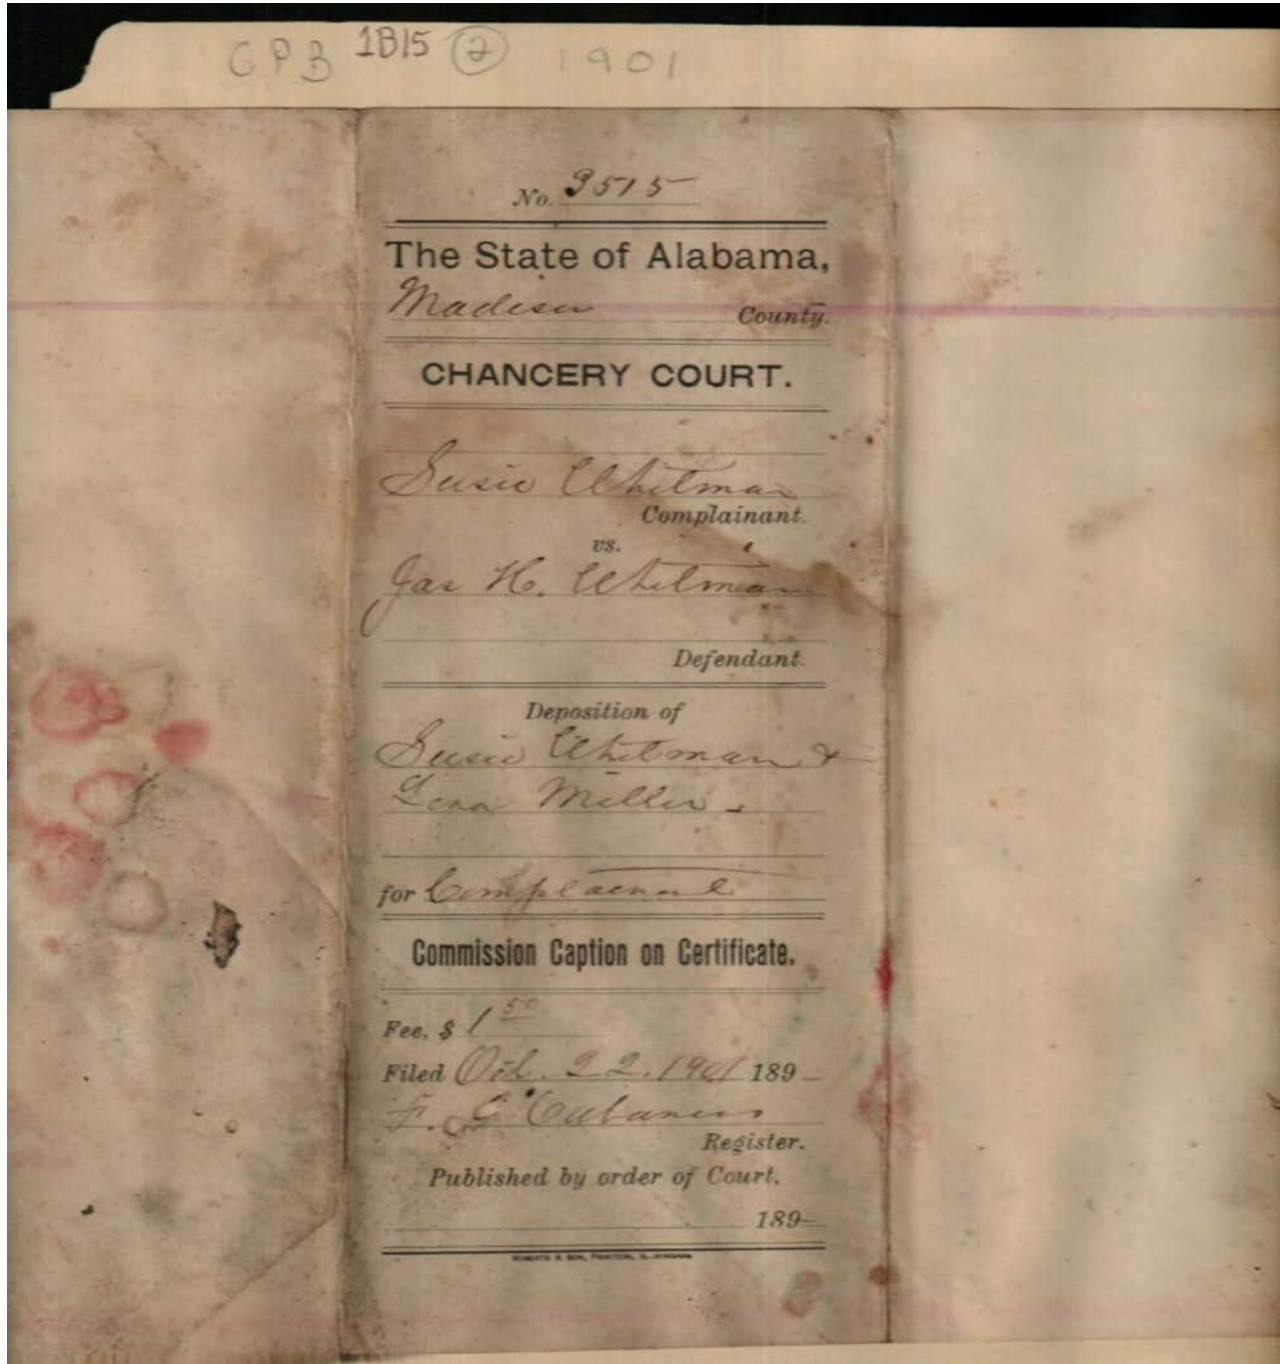 GPB 1B15 2 1901
No. 3515
The State of Alabama,
Madison County.
CHANCERY COURT.
Susie Whitman
Complainant.
vs.
Jas H. Whitman
Defendant.
Deposition of
Susie Whitman &
Lena Miller.
for Complainant
Commission Caption on Certificate.
Fee, $ 1 50
Filed Oct. 22. 1901 189
F. C. Cabaniss
Register.
Published by order of Court.
189